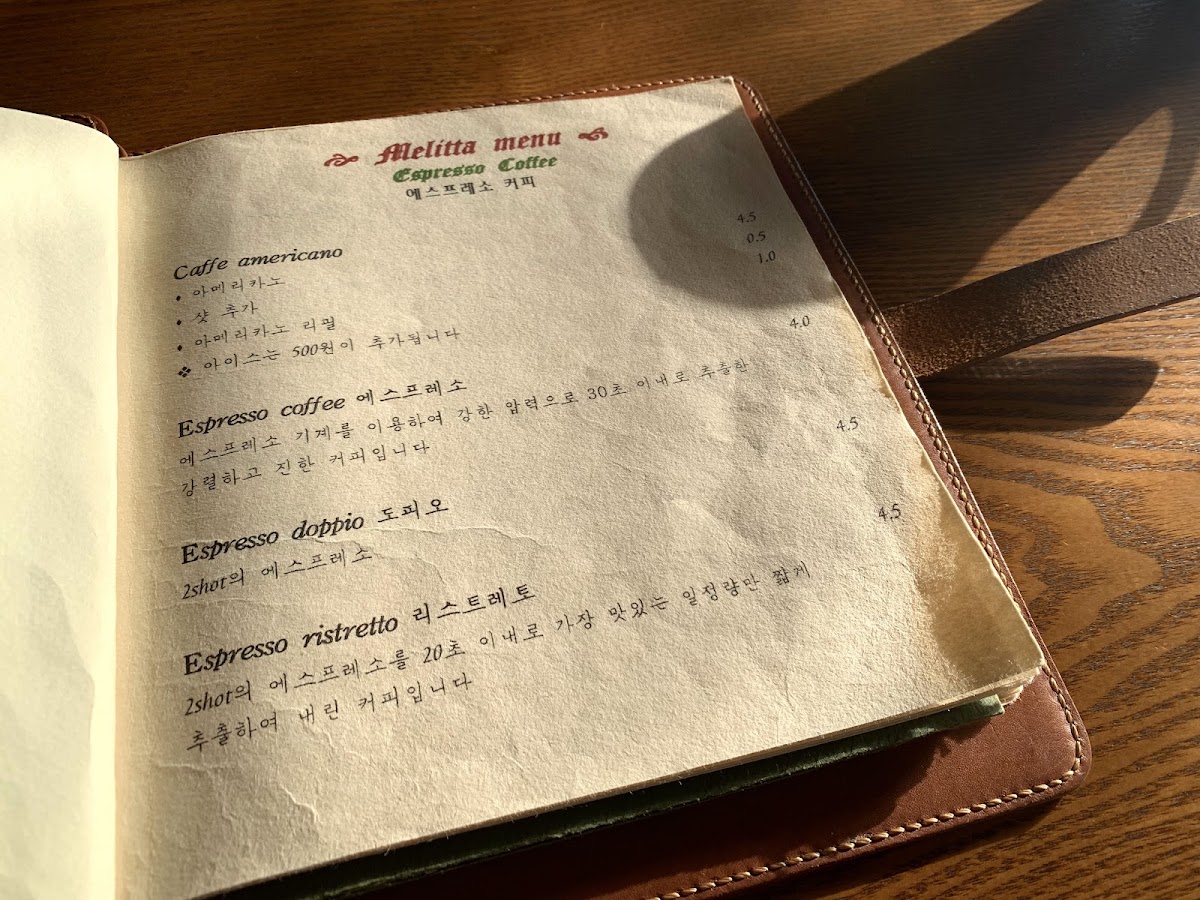 Melitta menu
Espresso Coffee
에스프레소 커피
Caffe americano
• 아메리카노 4.5
• 샷 추가 0.5
• 아메리카노 리필 1.0
❖ 아이스는 500원이 추가됩니다
Espresso coffee 에스프레소 4.0
에스프레소 기계를 이용하여 강한 압력으로 30초 이내로 추출한
강렬하고 진한 커피입니다
Espresso doppio 도피오 4.5
2shot의 에스프레소
Espresso ristretto 리스트레토 4.5
2shot의 에스프레소를 20초 이내로 가장 맛있는 일정량만 짧게
추출하여 내린 커피입니다